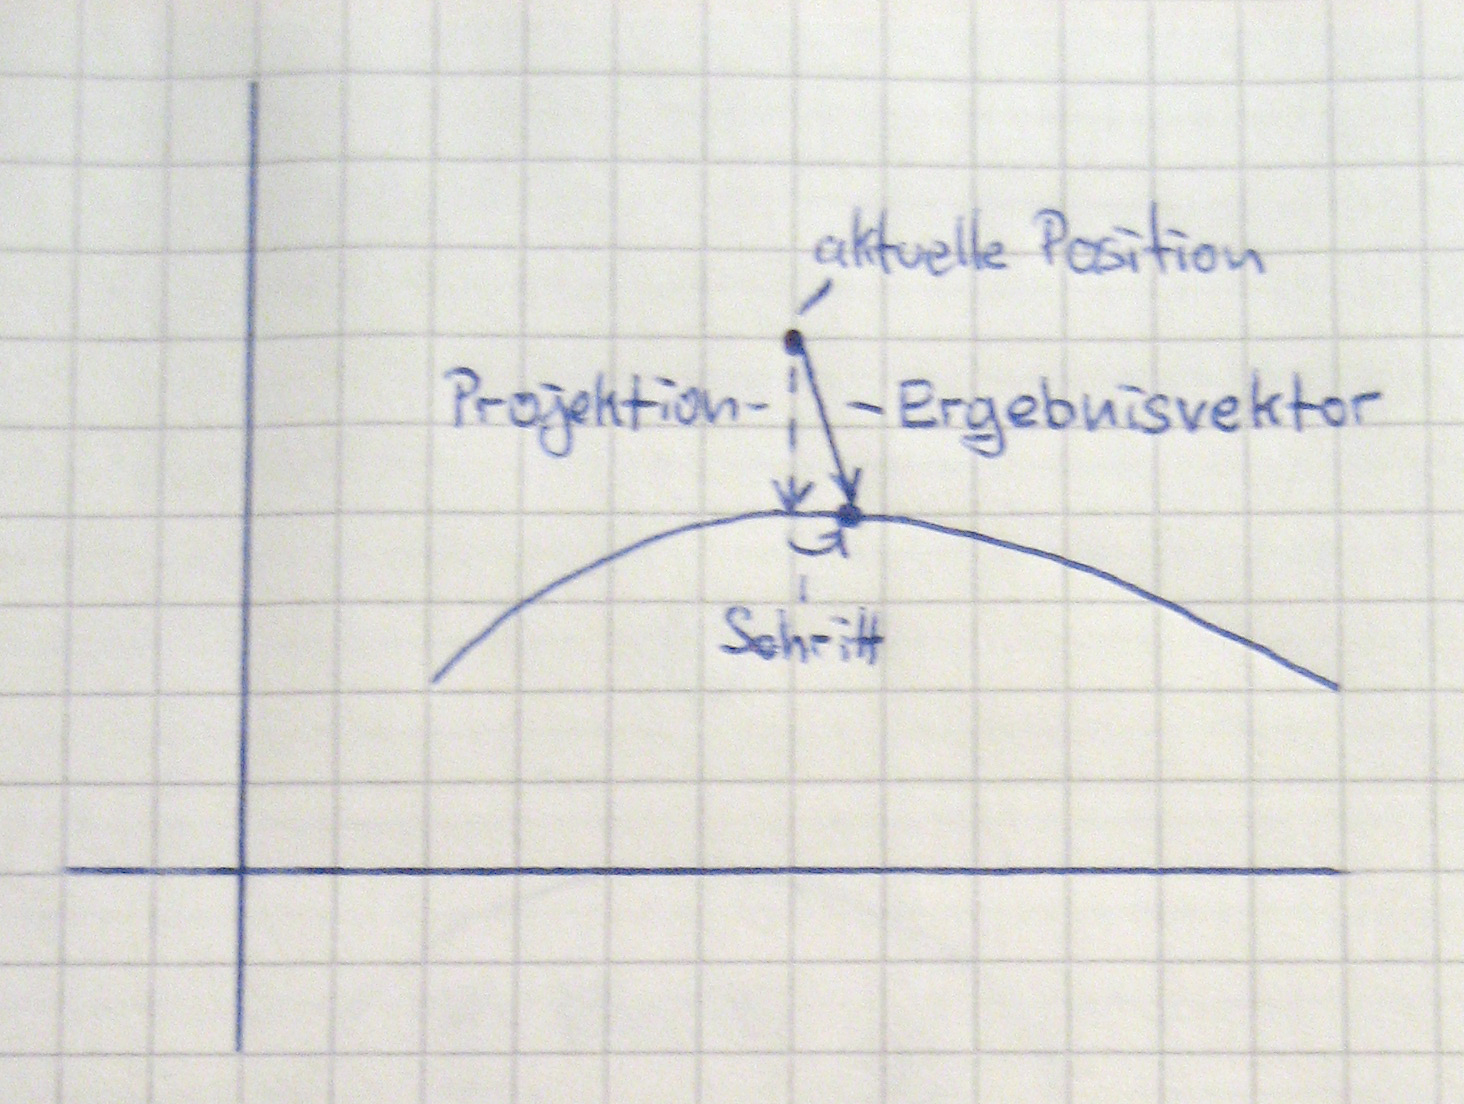 aktuelle Position
Projektion
Ergebnisvektor
Schritt